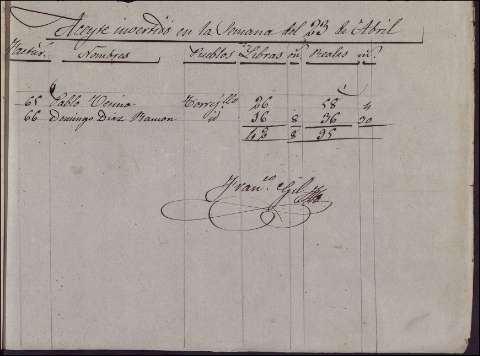 Aceyte invertido en la Semana del 23 de Abril
Nombres Pueblos Libras on.s Reales m.s
65 Pablo Torrejillo 26 58 4
66 Domingo Diaz Ramon id 16 8 36 30
42 8 95
Fran.co Gil